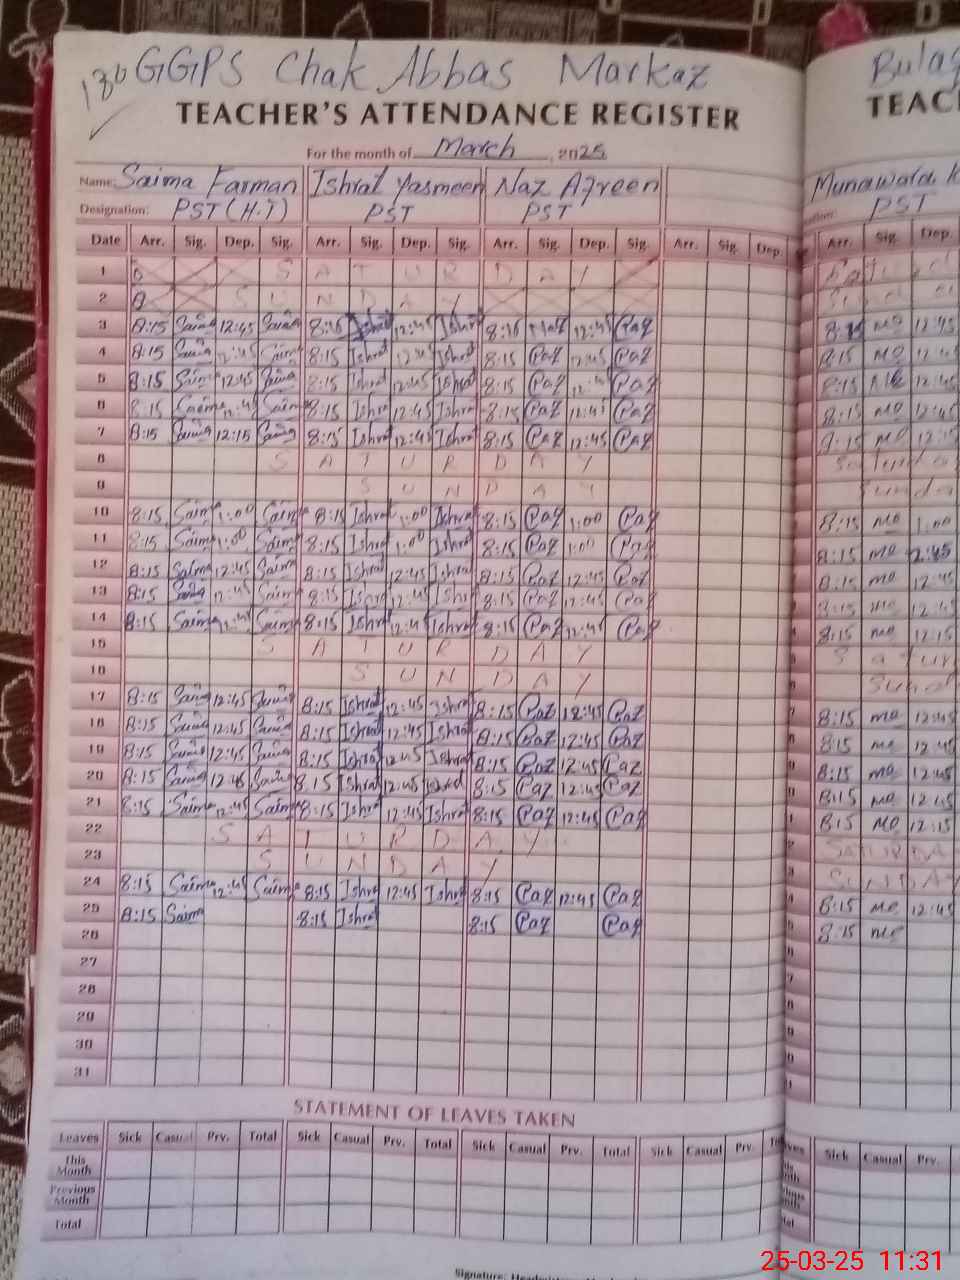 180 GGPS Chak Abbas Markaz Bula
TEACHER'S ATTENDANCE REGISTER TEAC
For the month of March, 2025
Name: Saima Farman Ishrat Yasmeen Naz Afreen Munawara K
Designation: PST (H.T) PST PST PST
Date Arr. Sig. Dep. Sig. Arr. Sig. Dep. Sig. Arr. Sig. Dep. Sig. Arr. Sig. Dep. Arr. Sig. Dep.
1 S A T U R D A Y
2 S U N D A Y
3 8:15 Saima 12:45 Saima Ishrat 12:45 Ishrat Naz 12:45 12:45
4 8:15 Saima 12:45 Saima 8:15 Ishrat 12:45 Ishrat 8:15 12:45 8:15 12:45
5 8:15 Saima 12:45 Saima 8:15 Ishrat 12:45 Ishrat 8:15 8:15 12:45
6 8:15 Saima 12:45 Saima 8:15 Ishrat 12:45 Ishrat 8:15 12:45 8:15 12:45
7 8:15 Saima 12:15 Saima 8:15 Ishrat 12:45 Ishrat 8:15 12:45
8 S A T U R D A Y
9 S U N D A Y
10 8:15 Saima 1:00 Saima 8:15 Ishrat 1:00 Ishrat 8:15 1:00 8:15 1:00
11 8:15 Saima 1:00 Saima 8:15 Ishrat 1:00 Ishrat 8:15 1:00 8:15
12 8:15 Saima 12:45 Saima 8:15 Ishrat 12:45 Ishrat 8:15 12:45 8:15 12:45
13 8:15 Saima 12:45 Saima 8:15 Ishrat 12:45 Ishrat 8:15 12:45 8:15 12:45
14 8:15 Saima 12:45 Saima 8:15 Ishrat Ishrat 8:15 12:45 8:15 12:15
15 S A T U R D A Y
16 S U N D A Y
17 8:15 Saima 12:45 Saima 8:15 Ishrat 12:45 Ishrat 8:15 12:45 8:15 12:45
18 8:15 Saima 12:45 Saima 8:15 Ishrat 12:45 Ishrat 8:15 12:45 8:15 12:45
19 8:15 Saima 12:45 Saima 8:15 Ishrat 12:45 Ishrat 8:15 12:45 8:15 12:45
20 8:15 Saima 12:45 Saima 8:15 Ishrat 12:45 Ishrat 8:15 12:45 8:15 12:45
21 8:15 Saima 12:45 Saima 8:15 Ishrat 12:45 Ishrat 8:15 12:45 8:15 12:15
22 S A T U R D A Y SATURDA
23 S U N D A Y SUNDAY
24 8:15 Saima 12:45 Saima 8:15 Ishrat 12:45 Ishrat 8:15 12:45 8:15 12:45
25 8:15 Saima 8:15 Ishrat 8:15 8:15
26
27
28
29
30
31
STATEMENT OF LEAVES TAKEN
Leaves Sick Casual Prv. Total Sick Casual Prv. Total Sick Casual Prv. Total Sick Casual Prv. Sick Casual Prv.
This Month
Previous Month
Total
Signature:
25-03-25 11:31